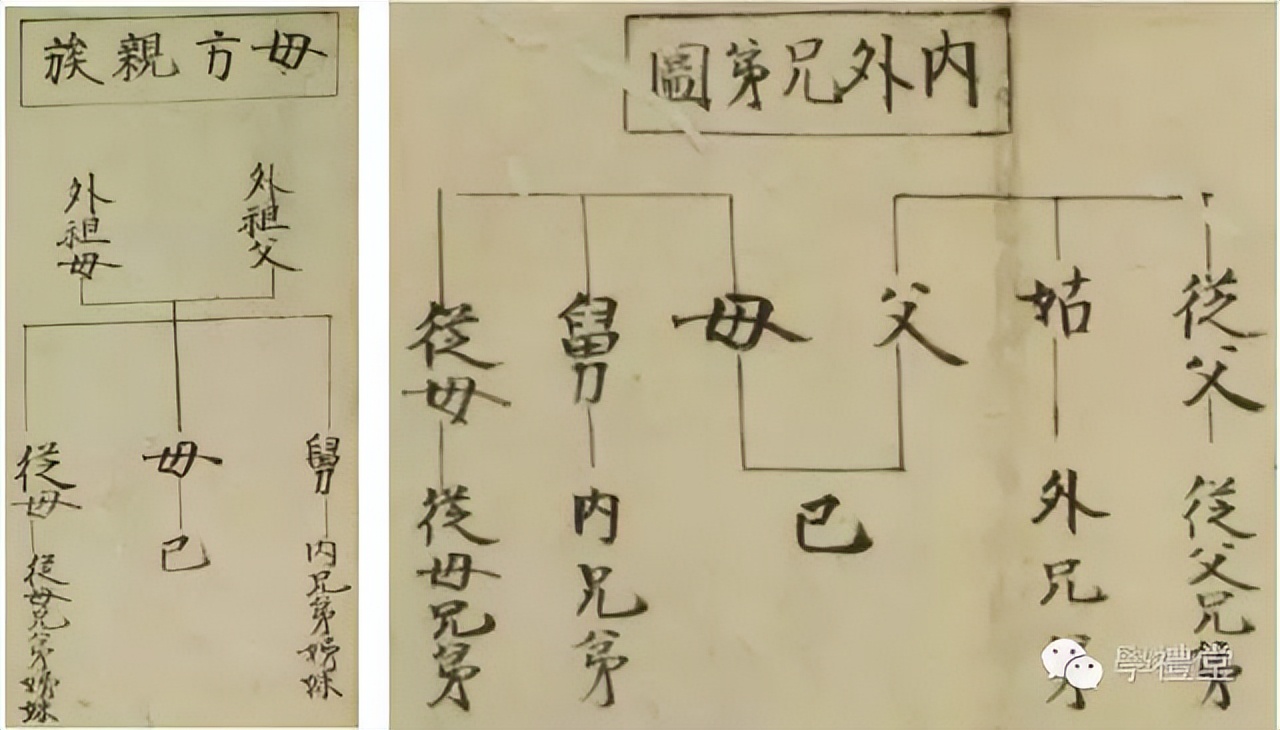 母方親族
外祖父
外祖母
舅
母
從母
內兄弟姊妹
己
從母兄弟姊妹
內外兄弟圖
從父
姑
父
母
舅
從母
從父兄弟
外兄弟
己
內兄弟
從母兄弟
學禮堂